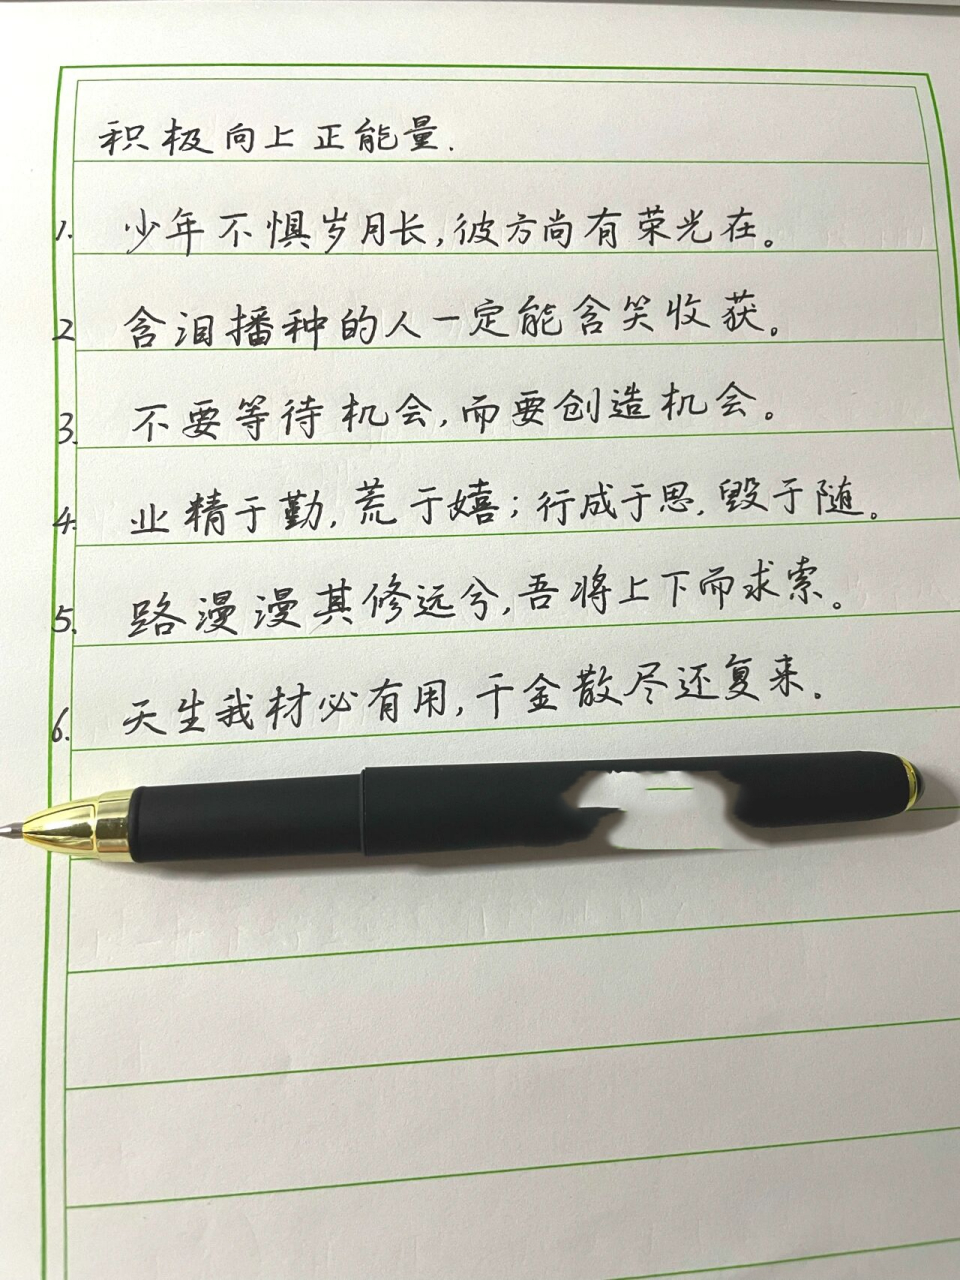 积极向上正能量.
1. 少年不惧岁月长,彼方尚有荣光在。
2 含泪播种的人一定能含笑收获。
3. 不要等待机会,而要创造机会。
4. 业精于勤,荒于嬉;行成于思,毁于随。
5. 路漫漫其修远兮,吾将上下而求索。
6. 天生我材必有用,千金散尽还复来.